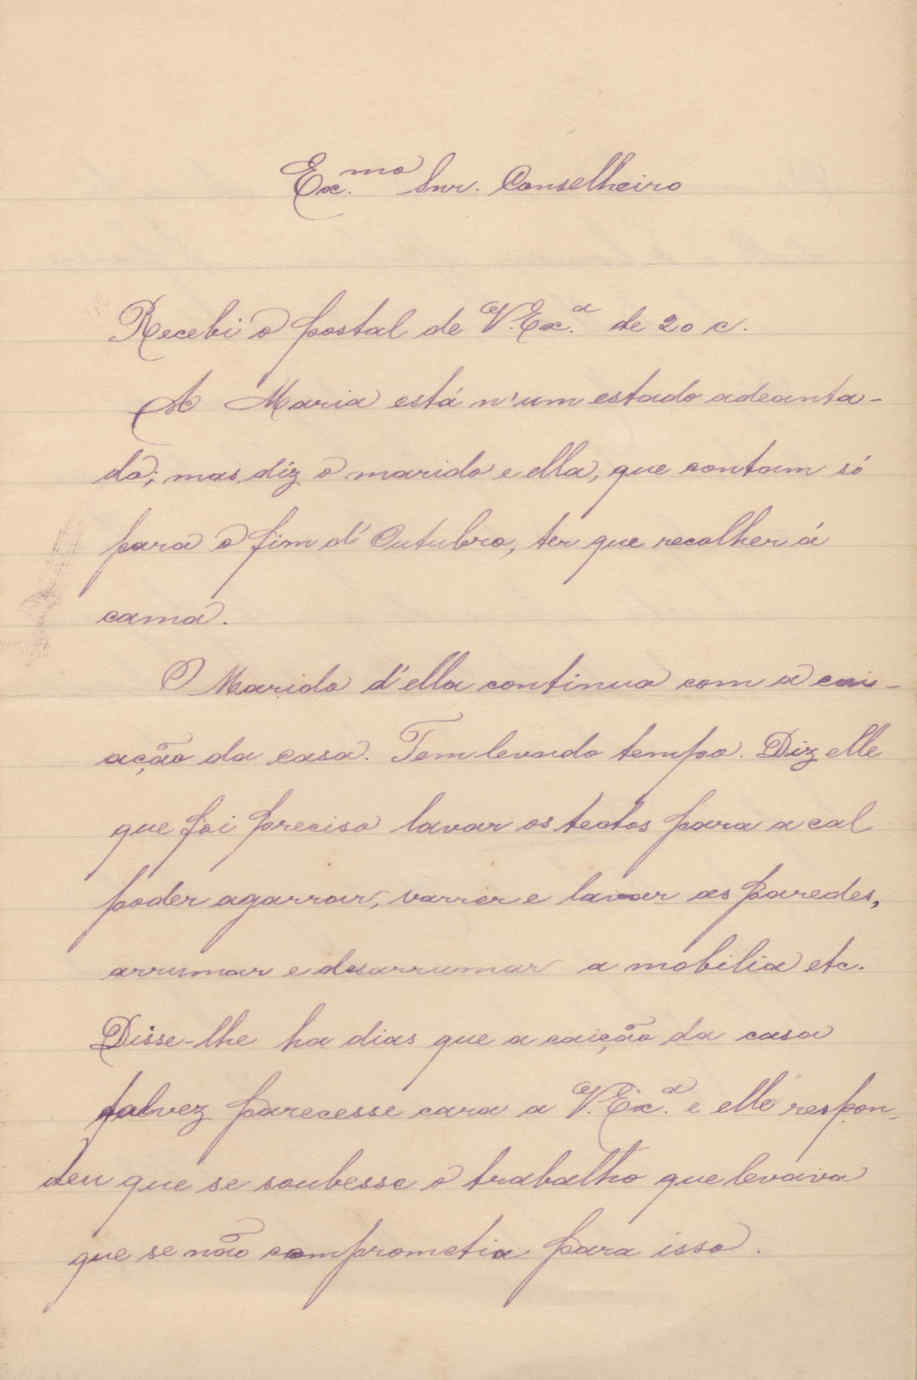 Ex.mo Snr. Conselheiro
Recebi o postal de V. Ex.a de 20 c.
A Maria está n'um estado adeanta-
do; mas diz o marido e ella, que contam só
para o fim d'Outubro, ter que recolher á
cama.
O Marido d'ella continua com a cai-
ação da casa. Tem levado tempo. Diz elle
que foi preciso lavar os tectos para a cal
poder agarrar, varrer e lavar as paredes,
arrumar e desarrumar a mobilia etc.
Disse-lhe ha dias que a caição da casa
talvez parecesse cara a V. Ex.a e elle respon-
deu que se soubesse o trabalho que levava
que se não comprometia para isso.